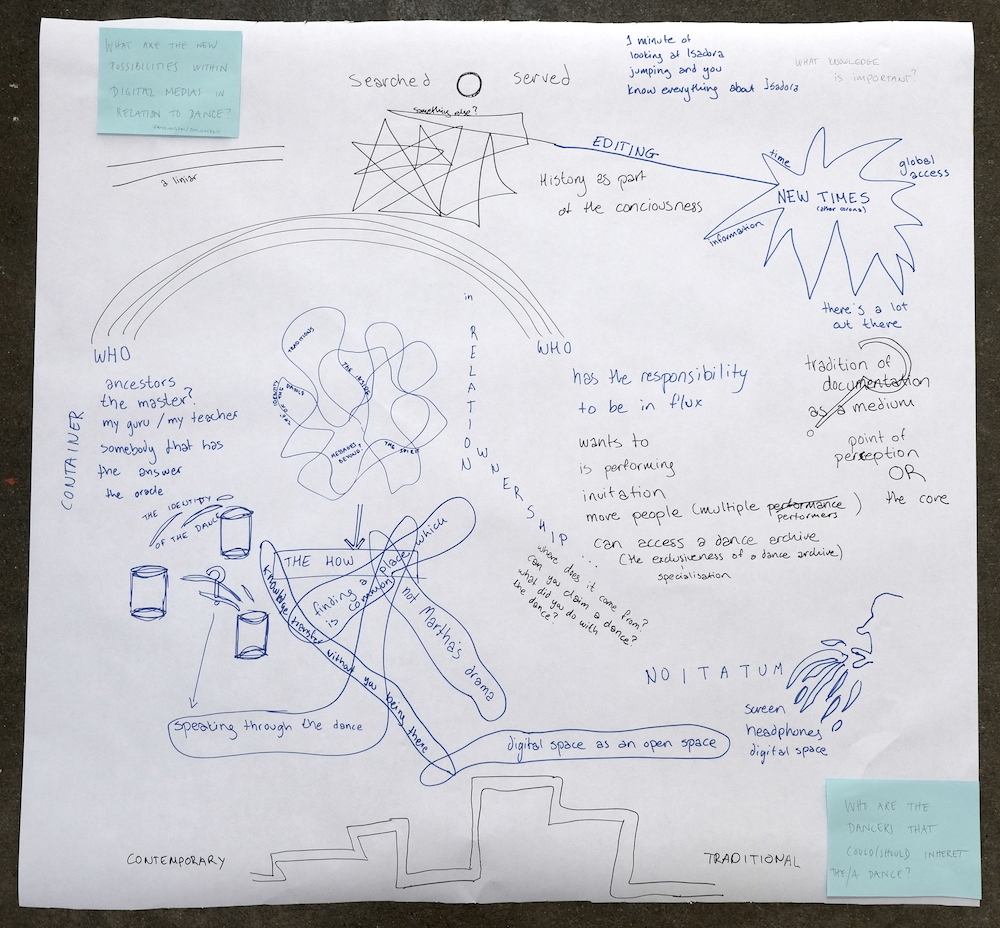 WHAT ARE THE NEW
POSSIBILITIES WITHIN
DIGITAL MEDIAS IN
RELATION TO DANCE?
Searched O served
1 minute of
looking at Isadora
jumping and you
know everything about Isadora
WHAT KNOWLEDGE
IS IMPORTANT?
something else?
a liniar
EDITING
History as part
of the conciousness
time
global
access
NEW TIMES
information
there's a lot
out there
WHO
ancestors
the master?
my guru / my teacher
somebody that has
the answer
the oracle
CONTAINER
TRADITIONS
THE INSIDE
MESSAGES
BEYOND?
THE SPIRIT
in
RELATION
OWNERSHIP
where does it come from?
can you claim a dance?
what did you do with
the dance?
WHO
has the responsibility
to be in flux
wants to
is performing
invitation
move people (multiple performance)
performers
can access a dance archive
(the exclusiveness of a dance archive)
specialisation
tradition of
documentation
as a medium
point of
perception
OR
the core
THE IDENTITY
OF THE DANCE
THE HOW
finding a
is common
place
which
not Martha's drama
knowledge transfer without you being there
speaking through the dance
digital space as an open space
NOITATUM
screen
headphones
digital space
CONTEMPORARY
TRADITIONAL
WHO ARE THE
DANCERS THAT
COULD/SHOULD INHERET
THE/A DANCE?